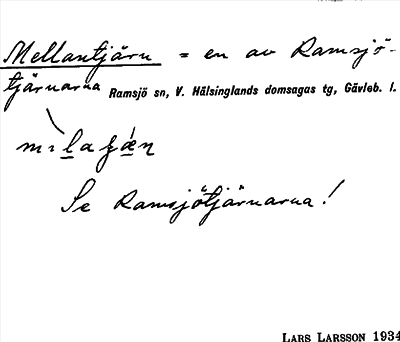 Mellantjärn = en av Ramsjö-
tjärnarna Ramsjö sn, V. Hälsinglands domsagas tg, Gävleb. l.
Se Ramsjötjärnarna!
LARS LARSSON 1934